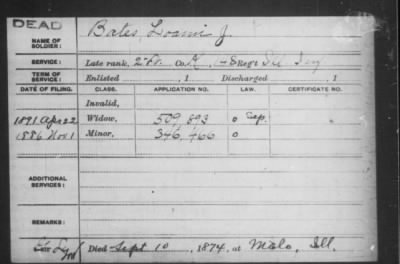 DEAD
NAME OF SOLDIER: Bates Loammi J.
SERVICE: Late rank, Co. K, 8 Reg't Inf
TERM OF SERVICE: Enlisted , 1 Discharged , 1
DATE OF FILING. CLASS. APPLICATION NO. LAW. CERTIFICATE NO.
Invalid,
1891 Apr 22 Widow, 509,893 o Sep.
1886 Nov 1 Minor, 346,466 o
ADDITIONAL SERVICES:
REMARKS:
Died Sept 10, 1874, at Ill.